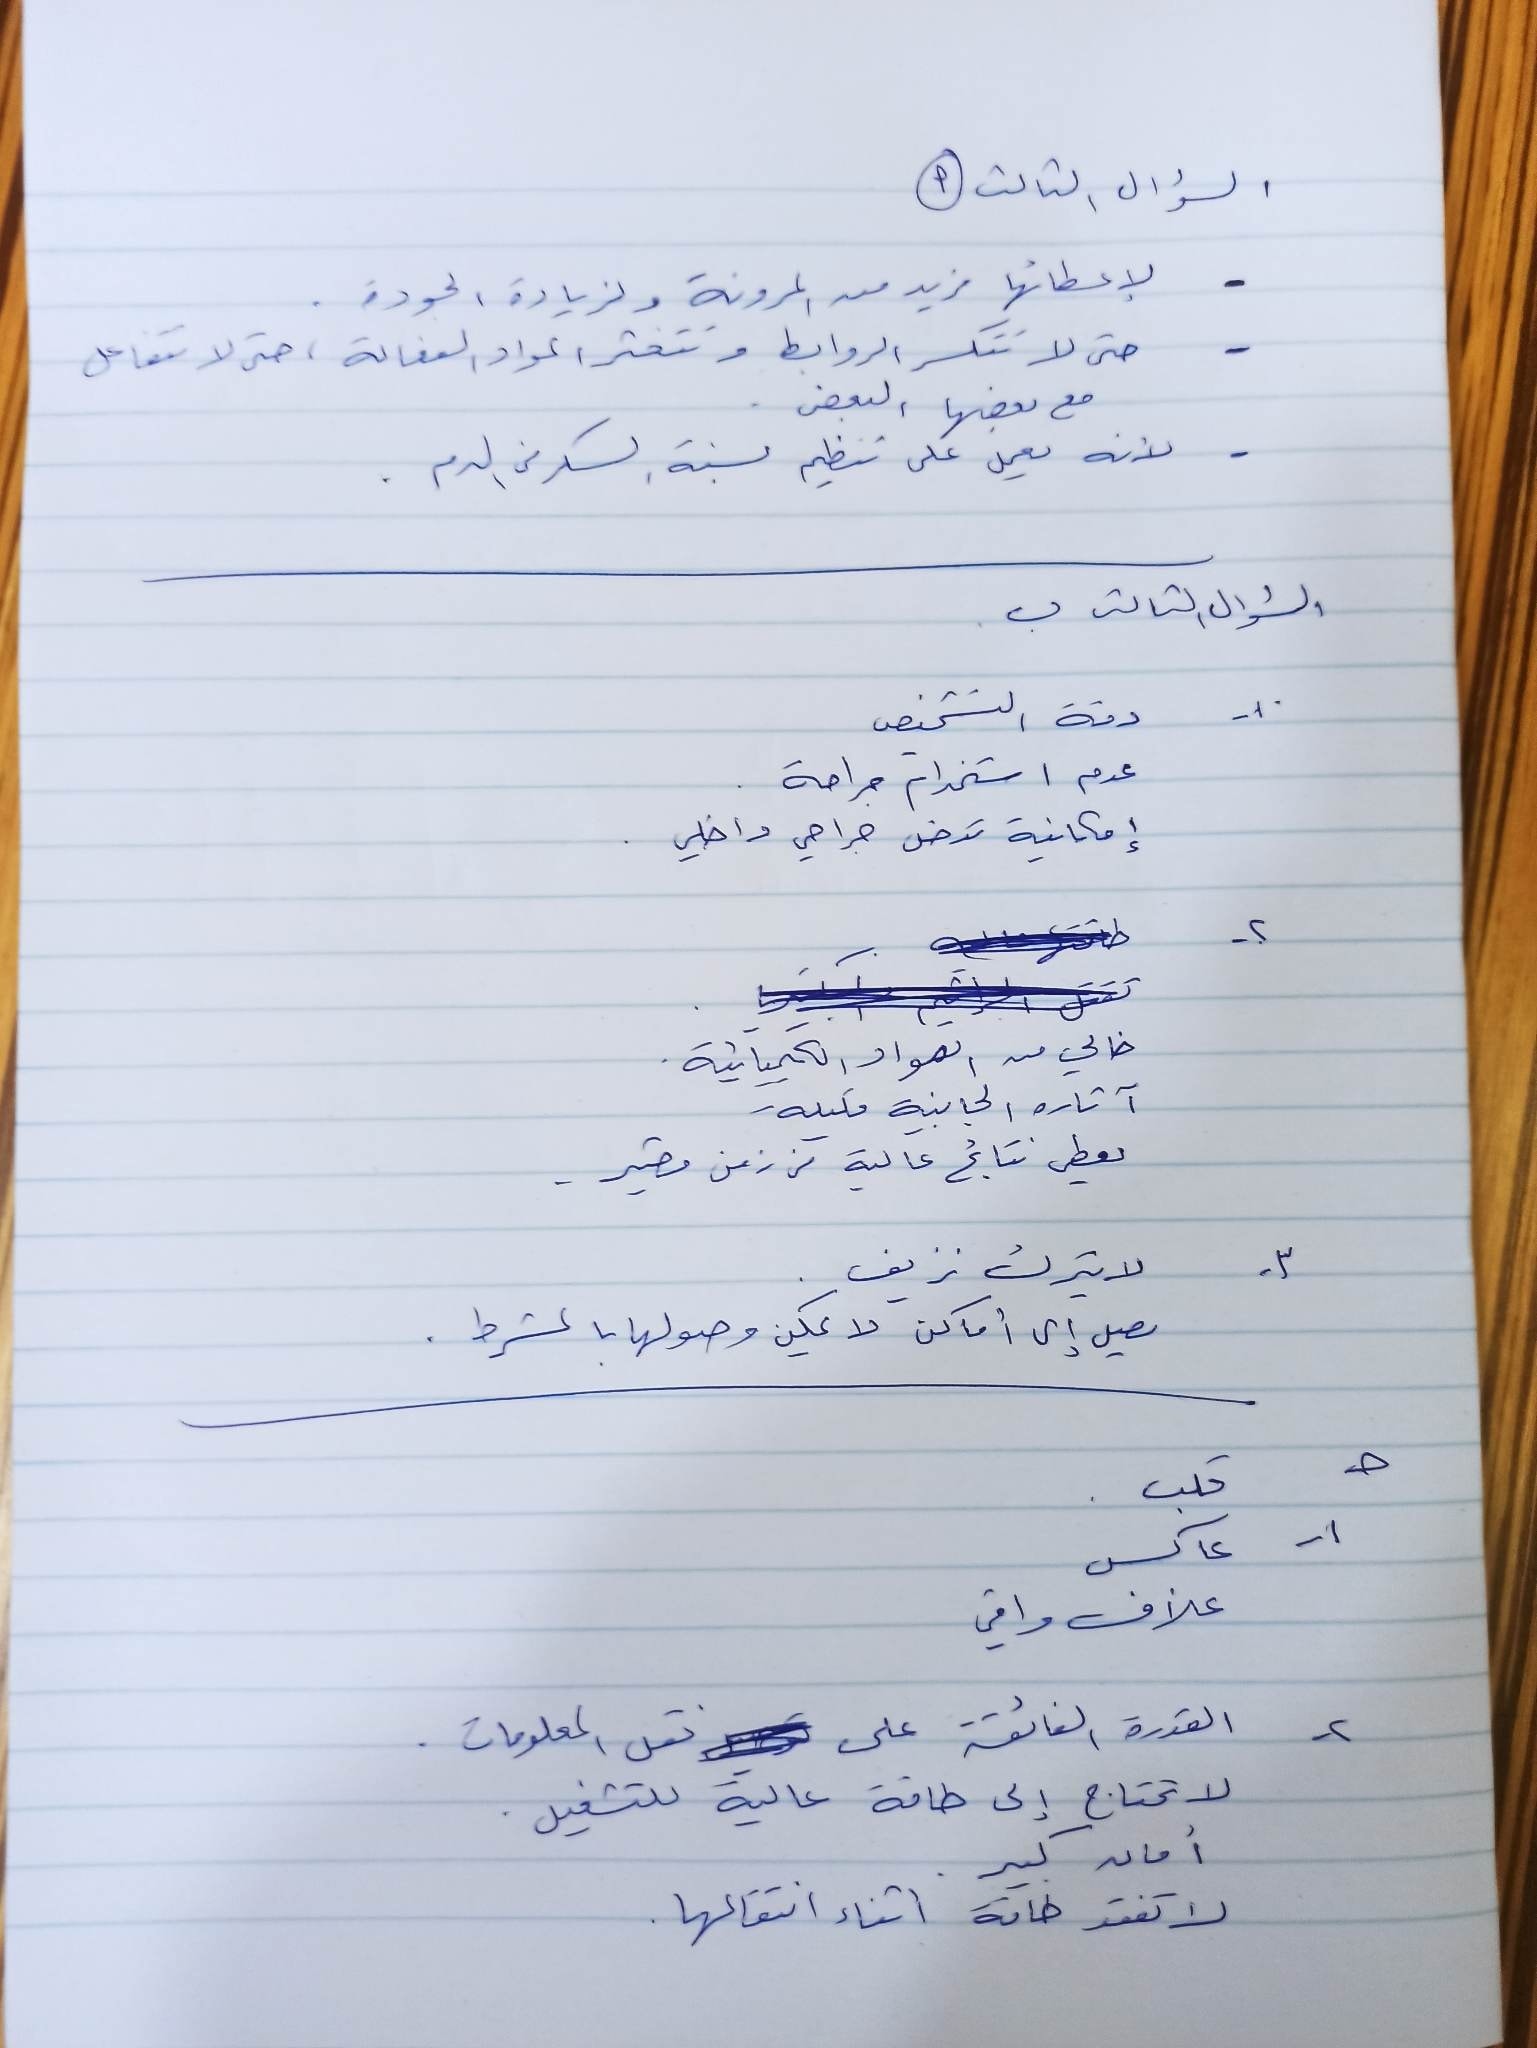 السؤال الثالث (أ)
- لإعطائها مزيد من المرونة ولزيادة الجودة .
- حتى لا تتكسر الروابط و المواد الفعالة ، حتى لا تتفاعل
مع بعضها البعض .
- لأنه يعمل على تنظيم نسبة السكر في الدم .
السؤال الثالث ب .
١- دقة التشخيص
عدم استخدام جراحة .
إمكانية تدخل جراحي داخلي .
٢-
خالي من المواد الكيميائية .
آثاره الجانبية قليلة -
يعطي نتائج عالية في زمن قصير -
٣- لا يترك نزيف .
يصل إلى أماكن لا يمكن وصولها بالمشرط .
ج قلب .
١- عاكس
غلاف واقي
٢- القدرة الفائقة على نقل المعلومات .
لا تحتاج إلى طاقة عالية للتشغيل .
أمان كبير .
لا تفقد طاقة أثناء انتقالها .